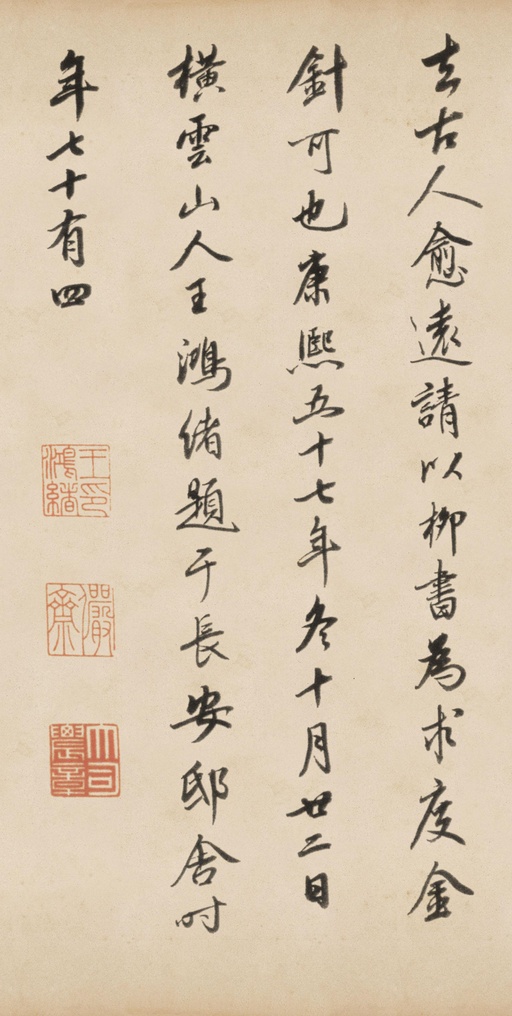 去古人愈遠請以柳書為求度金
針可也康熙五十七年冬十月廿二日
橫雲山人王鴻緒題于長安邸舍時
年七十有四
王印鴻緒
儼齋
大司農章